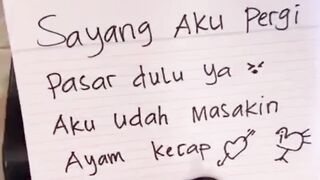 Sayang Aku Pergi
Pasar dulu ya
Aku udah masakin
Ayam kecap